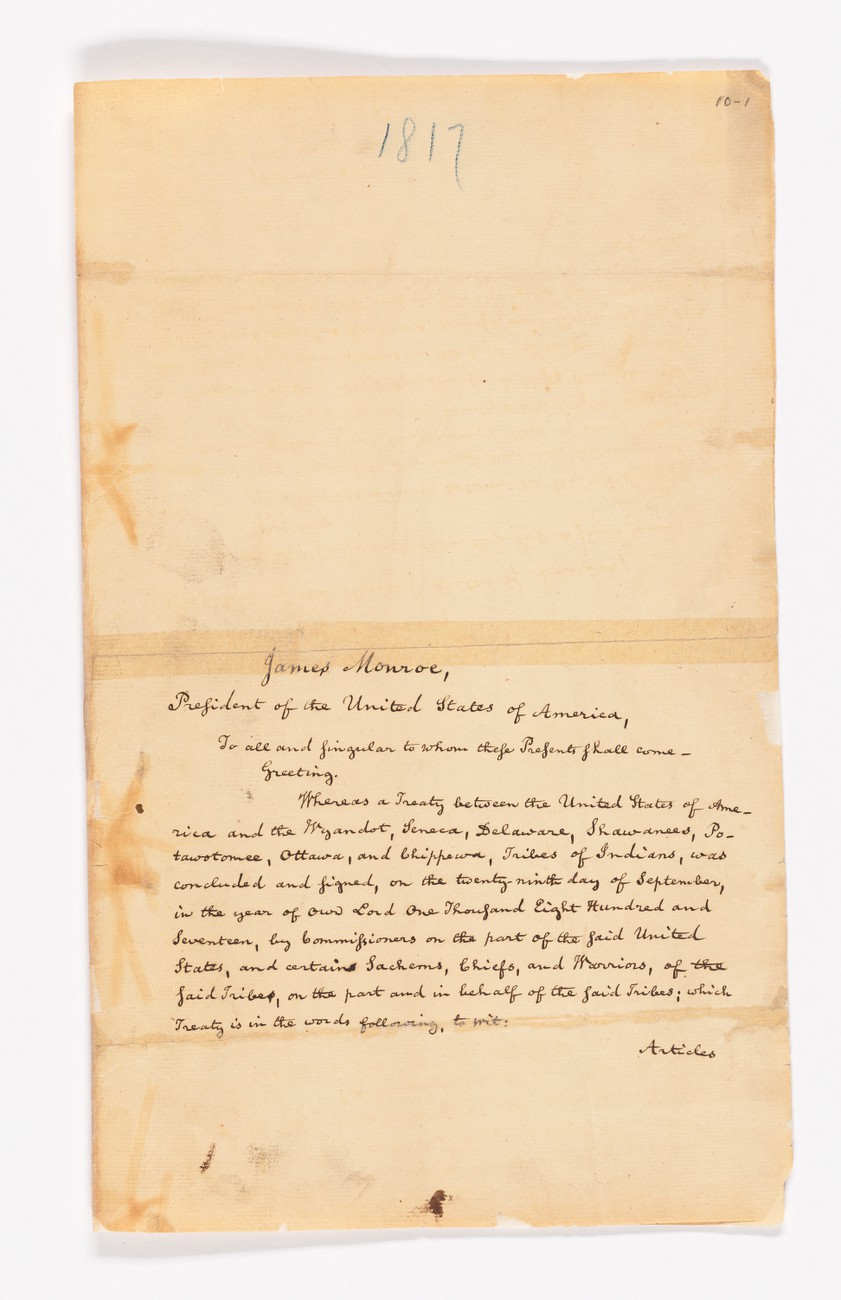 10-1
1817
James Monroe,
President of the United States of America,
To all and singular to whom these Presents shall come –
Greeting.
Whereas a Treaty between the United States of Ame-
rica and the Wyandot, Seneca, Delaware, Shawanees, Po-
tawotomee, Ottawa, and Chippewa, Tribes of Indians, was
concluded and signed, on the twenty-ninth day of September,
in the year of our Lord One Thousand Eight Hundred and
Seventeen, by Commissioners on the part of the said United
States, and certain Sachems, Chiefs, and Warriors, of the
said Tribes, on the part and in behalf of the said Tribes; which
Treaty is in the words following, to wit:
Articles